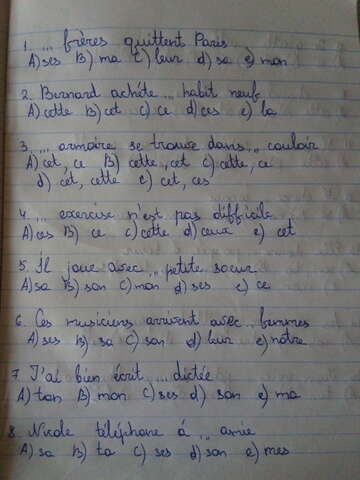 1. ... frères quittent Paris
A) ses B) ma C) leur d) sa e) mon
2. Bernard achéte ... habit neuf
A) cette B) cet C) ce d) ces e) la
3. ... armoire se trouve dans ... couloir
A) cet, ce B) cette, cet C) cette, ce
d) cet, cette e) cet, ces
4. ... exercise n'est pas difficile
A) ces B) ce C) cette d) ceux e) cet
5. Il joue avec ... petite soeur
A) sa B) son C) mon d) ses e) ce
6. Ces musiciens arrivent avec ... femmes
A) ses B) sa C) son d) leur e) notre
7. J'ai bien écrit ... dictée
A) ton B) mon C) ses d) son e) ma
8. Nicole téléphone á ... amie
A) sa B) ta C) ses d) son e) mes